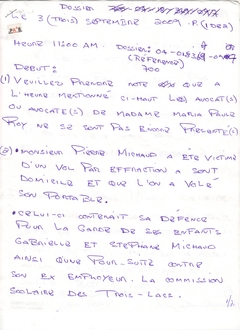 DOSSIER
LE 3 (TROIS) SEPTEMBRE 2009 -
HEURE 11:00 AM. DOSSIER: 04-
(RÉFÉRENCE) 700
DEBUT:
(1) VEUILLEZ PRENDRE NOTE QU'A
L'HEURE MENTIONNÉ CI-HAUT LES AVOCAT(S)
OU AVOCATE(S) DE MADAME MARIA PAULE
ROY NE SE SONT PAS ENCORE PRÉSENTÉ(S)
(2) • MONSIEUR PIERRE MICHAUD A ÉTÉ VICTIME
D'UN VOL PAR EFFRACTION A SONT
DOMICILE ET QUE L'ON A VOLÉ
SON PORTABLE.
• CELUI-CI CONTENAIT SA DÉFENCE
POUR LA GARDE DE SES ENFANTS
GABRIELLE ET STÉPHANE MICHAUD
AINSI QU'UNE POUR-SUITE CONTRE
SON EX EMPLOYEUR. LA COMMISSION
SCOLAIRE DES TROIS-LACS.
1/2